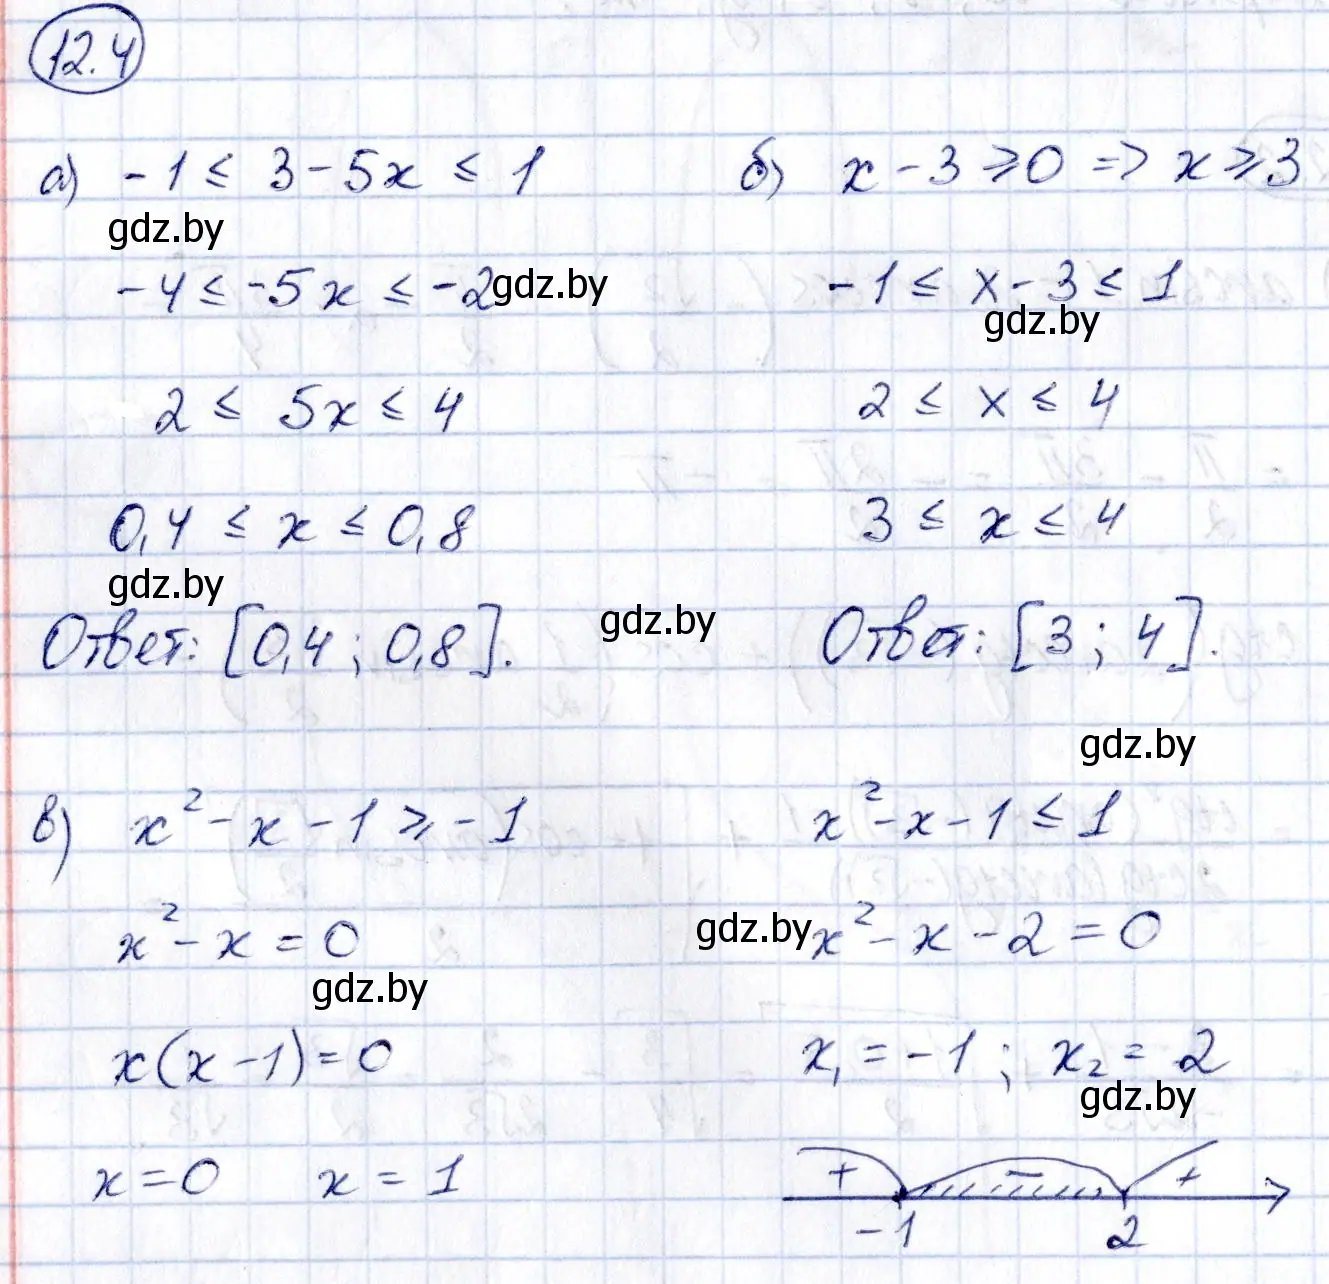 12.4
а) -1 ≤ 3 - 5x ≤ 1
gdz.by
-4 ≤ -5x ≤ -2
gdz.by
2 ≤ 5x ≤ 4
0,4 ≤ x ≤ 0,8
gdz.by
Ответ: [0,4 ; 0,8].
gdz.by
б) x - 3 ≥ 0 => x ≥ 3
-1 ≤ x - 3 ≤ 1
gdz.by
2 ≤ x ≤ 4
3 ≤ x ≤ 4
Ответ: [3 ; 4].
gdz.by
в) x² - x - 1 ≥ -1
x² - x = 0
gdz.by
x(x - 1) = 0
x = 0 x = 1
x² - x - 1 ≤ 1
gdz.by
x² - x - 2 = 0
x₁ = -1 ; x₂ = 2
gdz.by
+ - +
-1 2